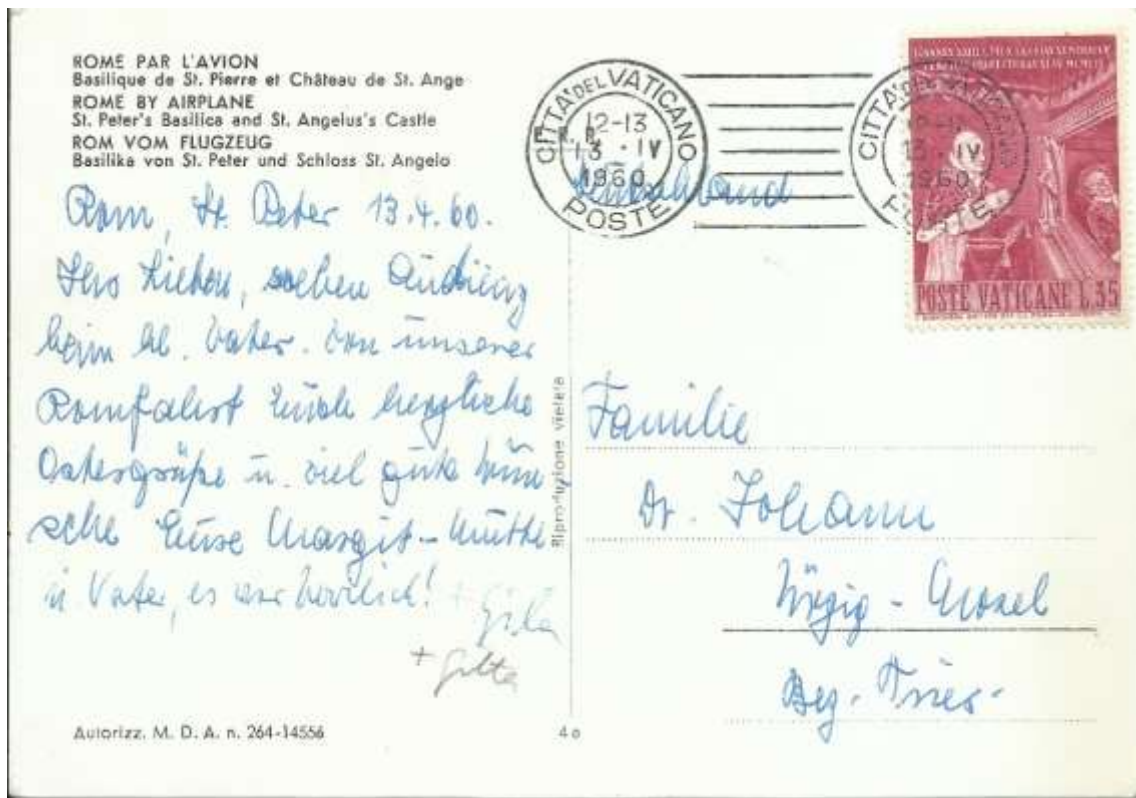 ROME PAR L'AVION
Basilique de St. Pierre et Château de St. Ange
ROME BY AIRPLANE
St. Peter's Basilica and St. Angelus's Castle
ROM VOM FLUGZEUG
Basilika von St. Peter und Schloss St. Angelo
Rom, St. Peter 13.4.60.
Ihr Lieben, soeben Audienz
beim hl. Vater. Von unserer
Romfahrt Euch herzliche
Ostergrüße u. viel gute Wün
sche Eure Margit - Mutti
u. Vater, es war herrlich! + Gitta
+ Gitta
Autorizz. M. D. A. n. 264-14556
Riproduzione vietata
40
CITTA' DEL VATICANO
12-13
13 . IV
1960
POSTE
CITTA' DEL VATICANO
13 . IV
1960
POSTE
POSTE VATICANE L.35
Deutschland
Familie
Dr. Johann
Ürzig - Mosel
Bez. Trier